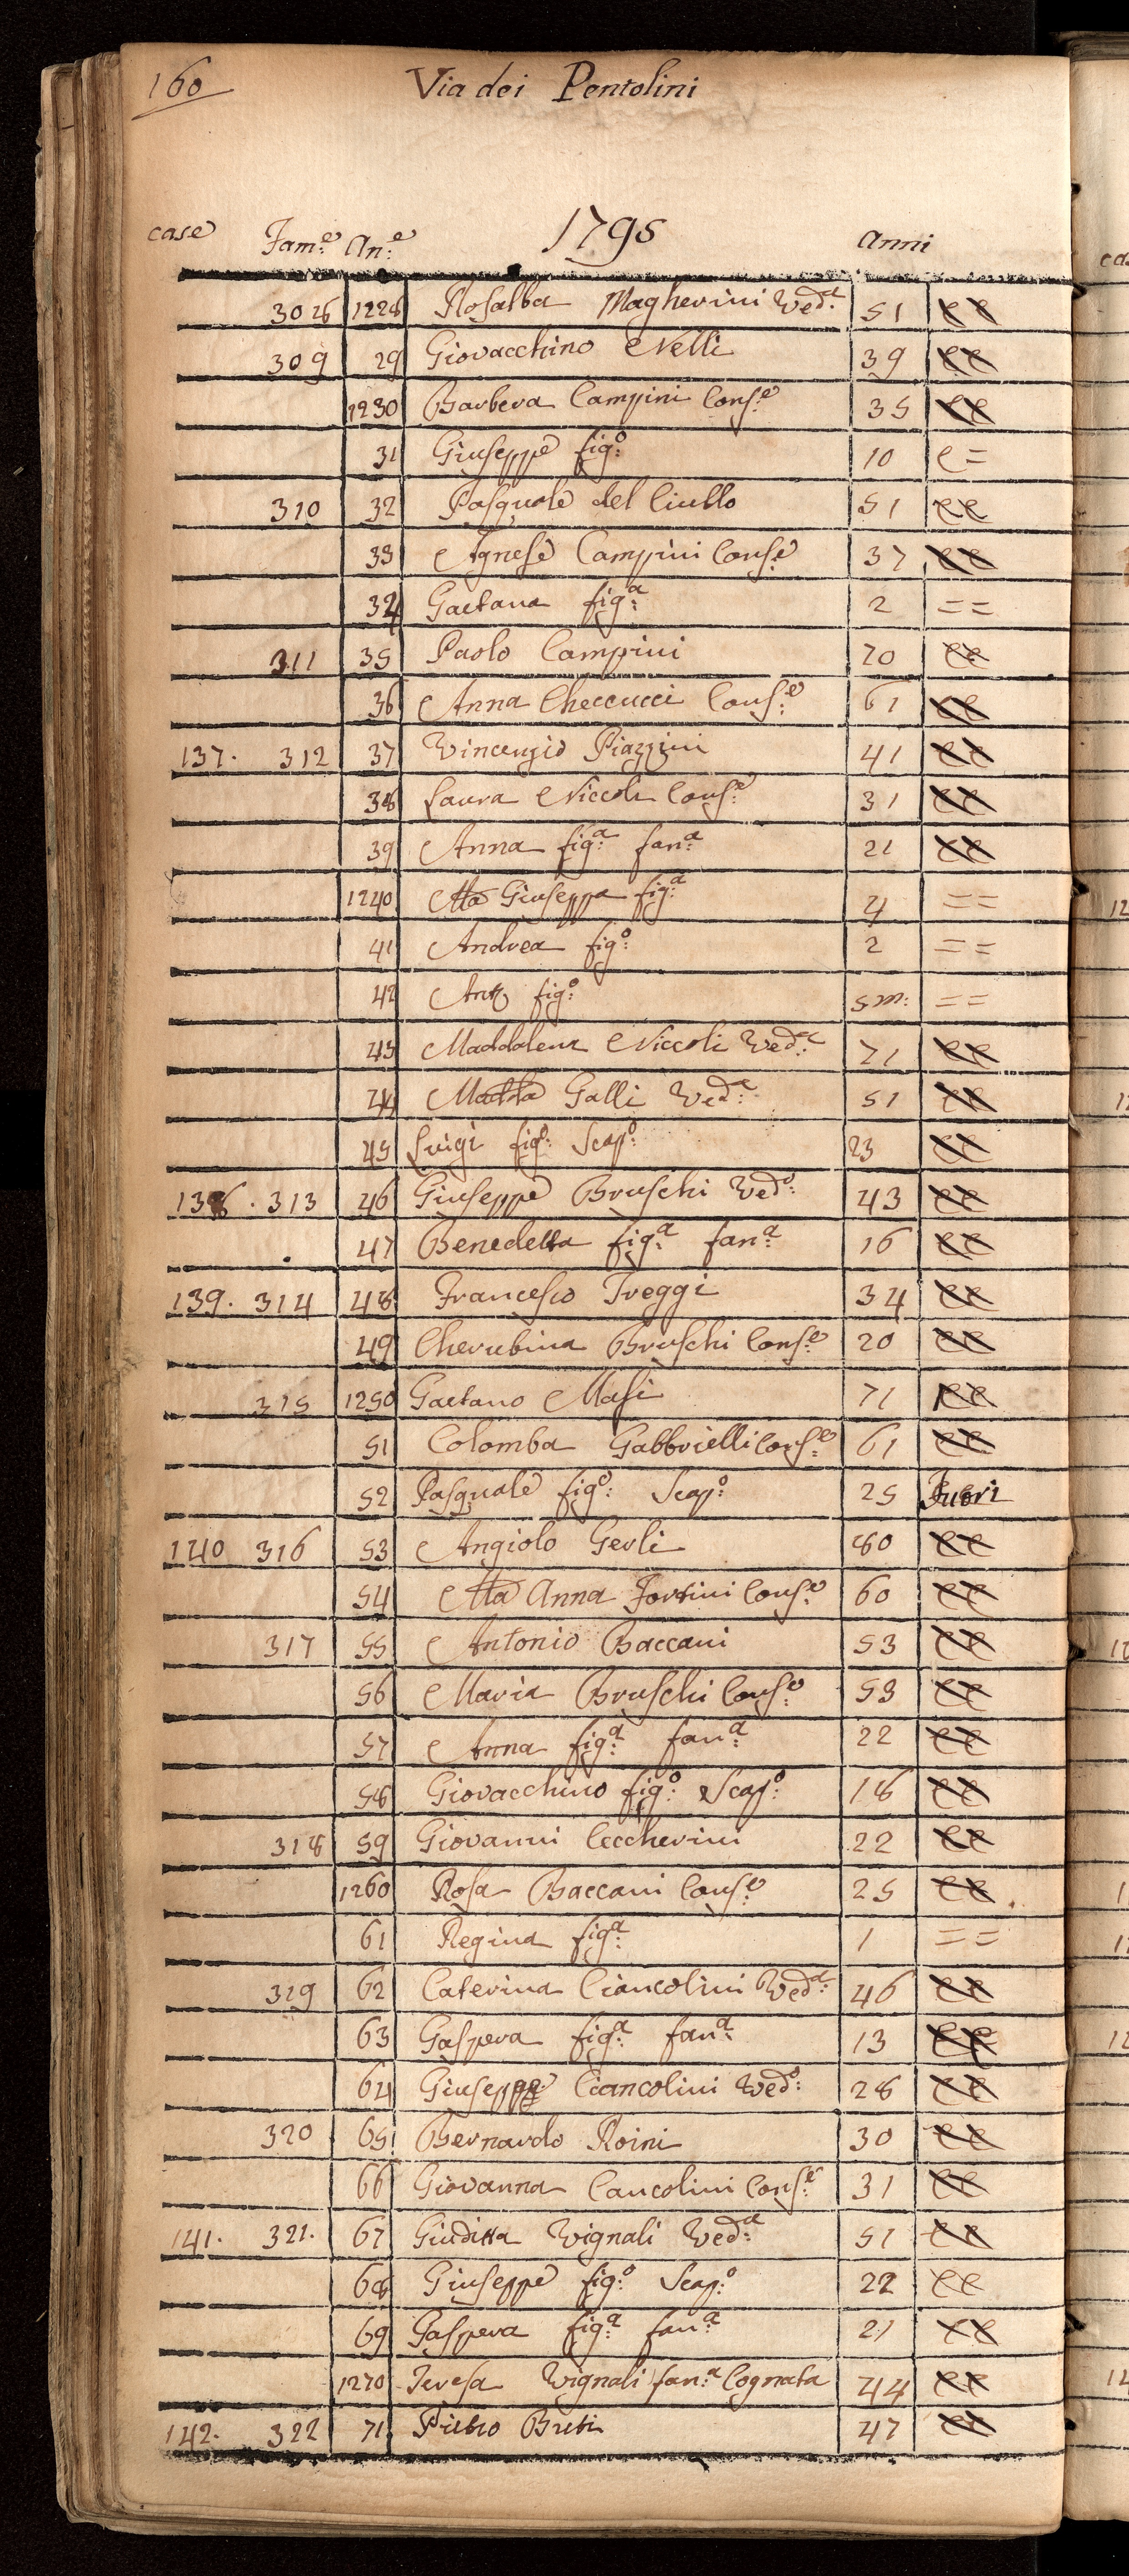 160 Via dei Pentolini
case Fam:e An:e 1795 Anni
308 1228 Rosalba Magherini Ved:a 51 CC
309 29 Giovacchino Nelli 39 CC
1230 Barbera Campini Cons:e 35 CC
31 Giuseppe fig:o 10 C=
310 32 Pasquale del Ciullo 51 CC
33 Agnese Campini Cons:e 37 CC
34 Gaetana fig:a 2 ==
311 35 Paolo Campini 70 CC
36 Anna Checcucci Cons:e 61 CC
137. 312 37 Vincenzio Piazzini 41 CC
38 Laura Niccoli Cons:e 31 CC
39 Anna fig:a fan:a 21 CC
1240 Ma Giuseppa fig:a 4 ==
41 Andrea fig:o 2 ==
42 Anto fig:o 5 m: ==
43 Maddalena Niccoli Ved:a 71 CC
44 Galli Ved:a 51 CC
45 Luigi fig:o Scap:o 23 CC
138. 313 46 Giuseppe Bruschi Ved:o 43 CC
47 Benedetta fig:a fan:a 16 CC
139. 314 48 Francesco Treggi 34 CC
49 Cherubina Bruschi Cons:e 20 CC
315 1250 Gaetano Masi 71 CC
51 Colomba Gabbrielli Cons:e 61 CC
52 Pasquale fig:o Scap:o 25 Fuori
140 316 53 Angiolo Gerli 80 CC
54 Ma Anna Fortini Cons:e 60 CC
317 55 Antonio Baccani 53 CC
56 Maria Bruschi Cons:e 53 CC
57 Anna fig:a fan:a 22 CC
58 Giovacchino fig:o Scap:o 18 CC
318 59 Giovanni Ceccherini 22 CC
1260 Rosa Baccani Cons:e 25 CC
61 Regina fig:a 1 ==
319 62 Caterina Ciancolini Ved:a 46 CC
63 Gaspera fig:a fan:a 13 CC
64 Giuseppe Ciancolini Ved:o 28 CC
320 65 Bernardo Roini 30 CC
66 Giovanna Cancolini Cons:e 31 CC
141. 321. 67 Giuditta Vignali Ved:a 51 CC
68 Giuseppe fig:o Scap:o 22 CC
69 Gaspera fig:a fan:a 21 CC
1270 Teresa Vignali fan:a Cognata 44 CC
142. 322 71 Pietro Breti 47 CC